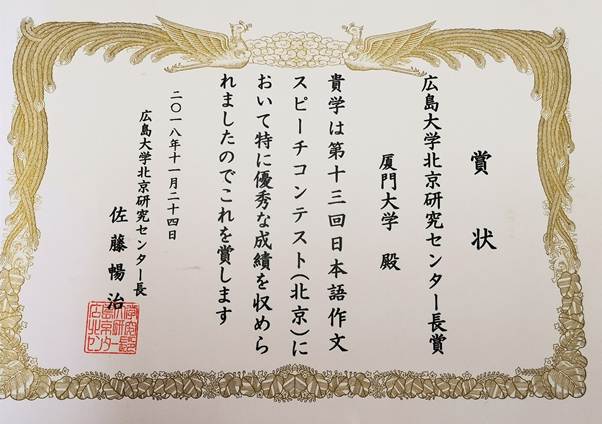 賞状
広島大学北京研究センター長賞
厦門大学 殿
貴学は第十三回日本語作文
スピーチコンテスト(北京)に
おいて特に優秀な成績を収めら
れましたのでこれを賞します
二〇一八年十一月二十四日
広島大学北京研究センター長
佐藤暢治